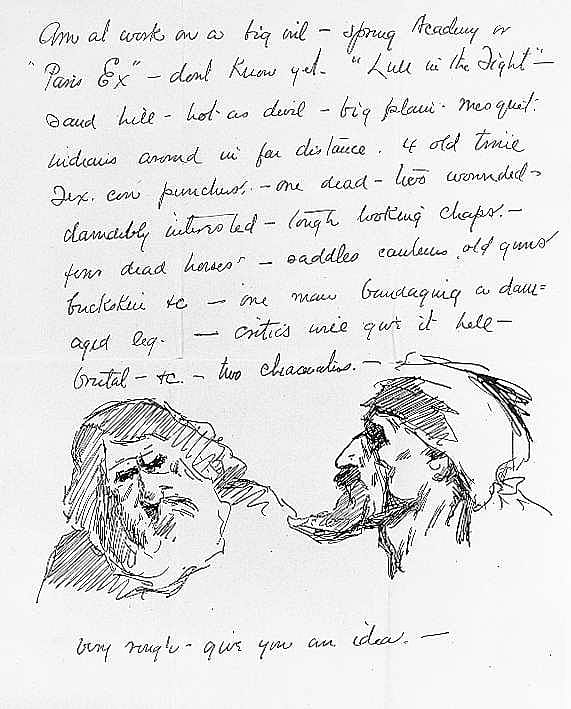 Am at work on a big oil – spring Academy or
"Paris Ex" – dont know yet. "Lull in the Fight" –
sand hill – hot as devil – big plain – mesquit.
indians around in far distance. 4 old time
Tex. cow punchers. – one dead – two wounded –
damdably interested – tough looking chaps. –
four dead horses – saddles canteens, old guns
buckskin &c – one man bandaging a dam=
aged leg. – critics will give it hell –
brutal – &c. – two characters. –
very rough – give you an idea. –